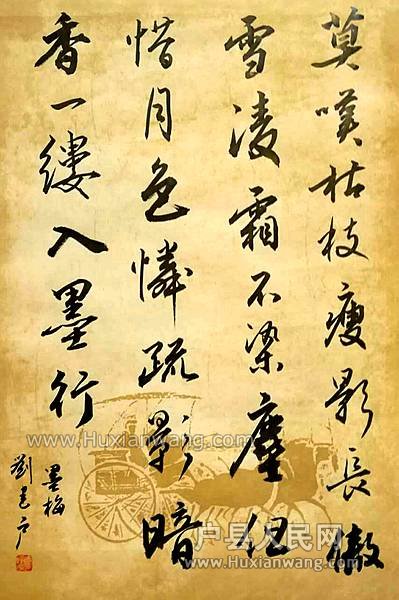 莫嘆枯枝瘦影長傲
雪凌霜不染塵但
惜月色憐疏影暗
香一縷入墨行
墨梅
劉
户县人民网
www.Huxianwang.com
www.Huxianwang.com
户县人民网
www.Huxianwang.com